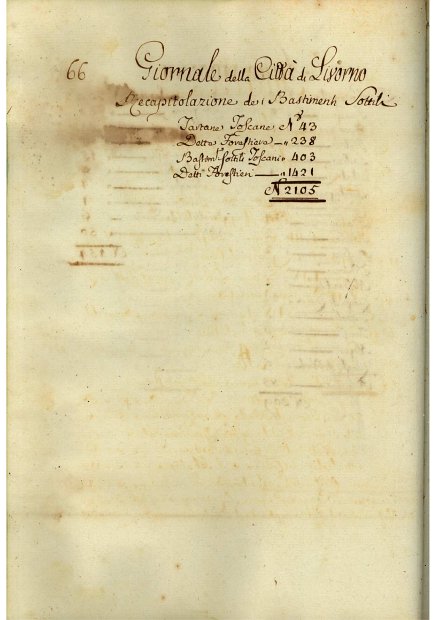 66
Giornale della Città di Livorno
Recapitolazione dei Bastimenti Sottili
Tartane Toscane N° 43
Dette Forastiere — " 238
Bastim.ti Sottili Toscani " 403
Detti Forastieri — " 1421
N° 2105